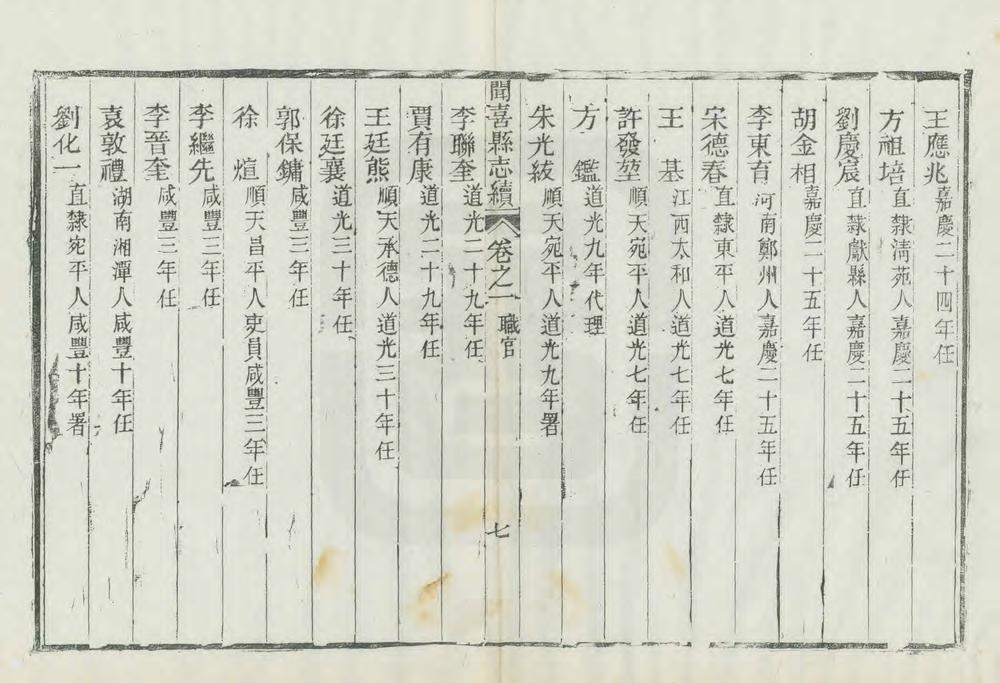 王應兆嘉慶二十四年任
方祖培直隸淸苑人嘉慶二十五年任
劉慶宸直隸獻縣人嘉慶二十五年任
胡金相嘉慶二十五年任
李東育河南鄭州人嘉慶二十五年任
宋德春直隸東平人道光七年任
王　基江西太和人道光七年任
許發堃順天宛平人道光七年任
方　鑑道光九年代理
朱光紱順天宛平人道光九年署
聞喜縣志續　卷之一　職官　七
李聯奎道光二十九年任
賈有康道光二十九年任
王廷熊順天承德人道光三十年任
徐廷襄道光三十年任
郭保鏞咸豐三年任
徐　煊順天昌平人吏員咸豐三年任
李繼先咸豐三年任
李晉奎咸豐三年任
袁敦禮湖南湘潭人咸豐十年任
劉化一直隸宛平人咸豐十年署